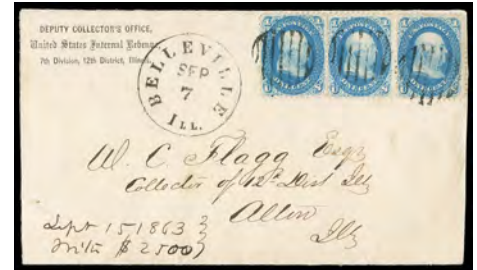 DEPUTY COLLECTOR'S OFFICE,
United States Internal Revenue
7th Division, 12th District, Illinois.
BELLEVILLE
SEP
7
ILL.
W. C. Flagg Esqr
Collector of 12th Dist Ills
Alton
Ills
Sept 15 1863
$2500